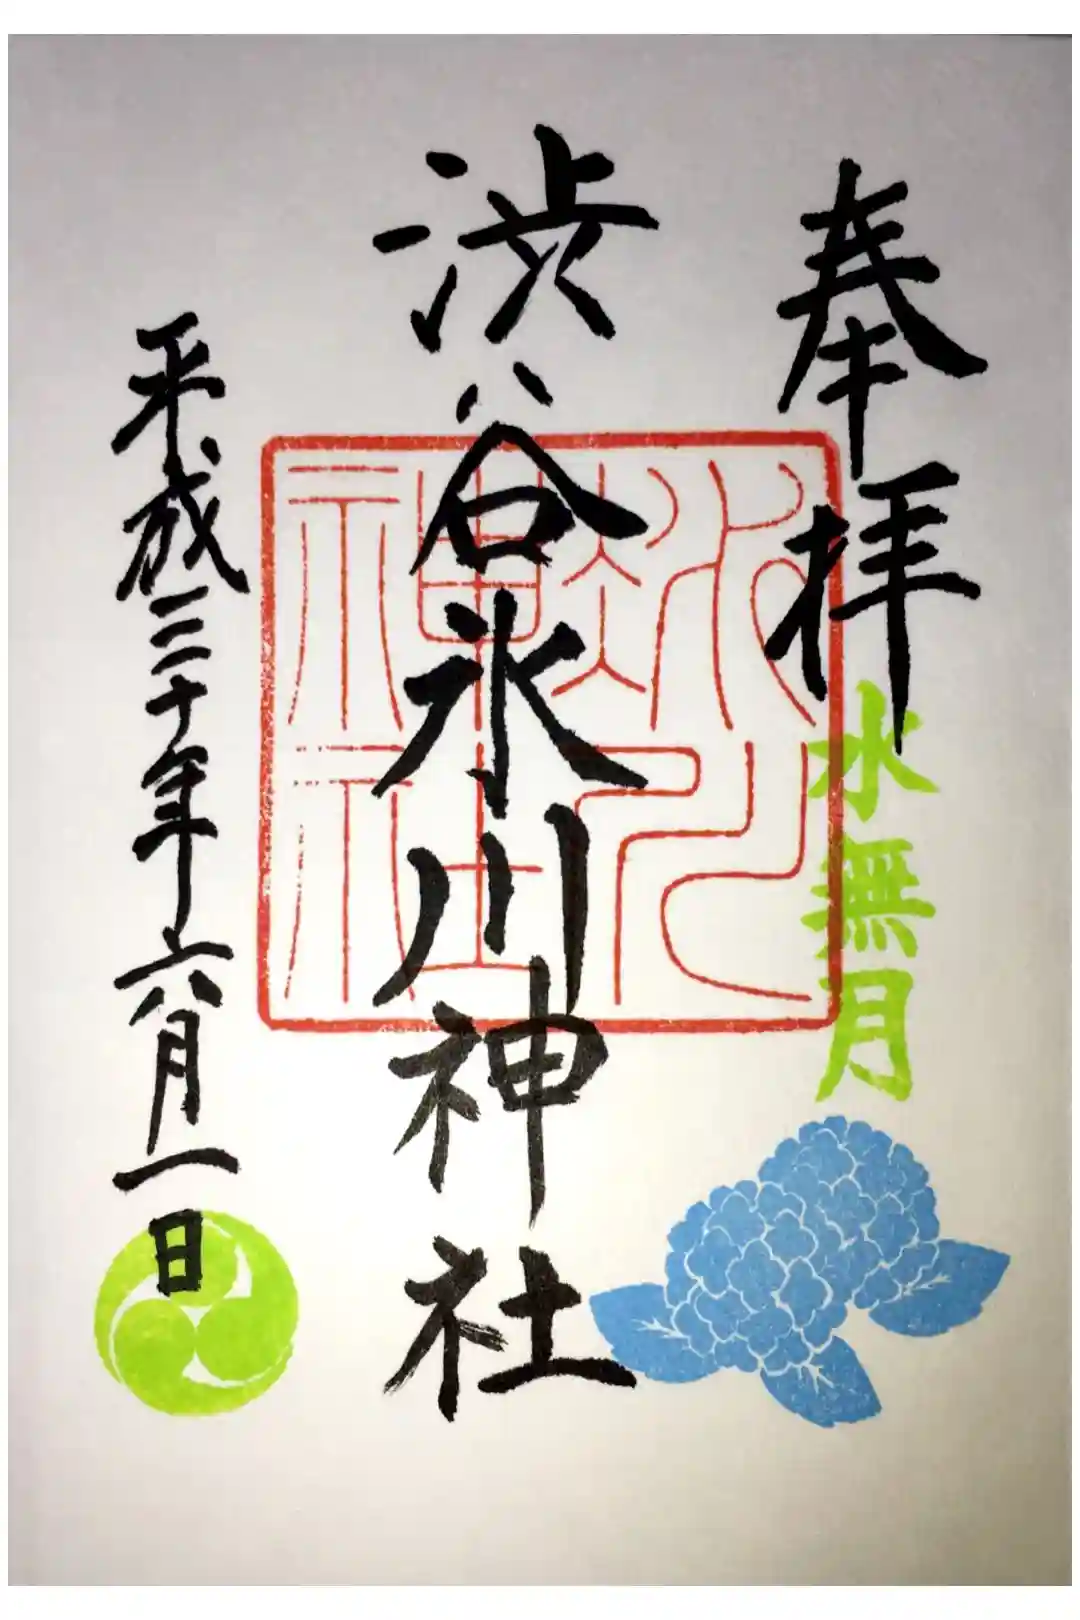 奉拝
水無月
渋谷氷川神社
氷川
神社
平成三十年六月一日